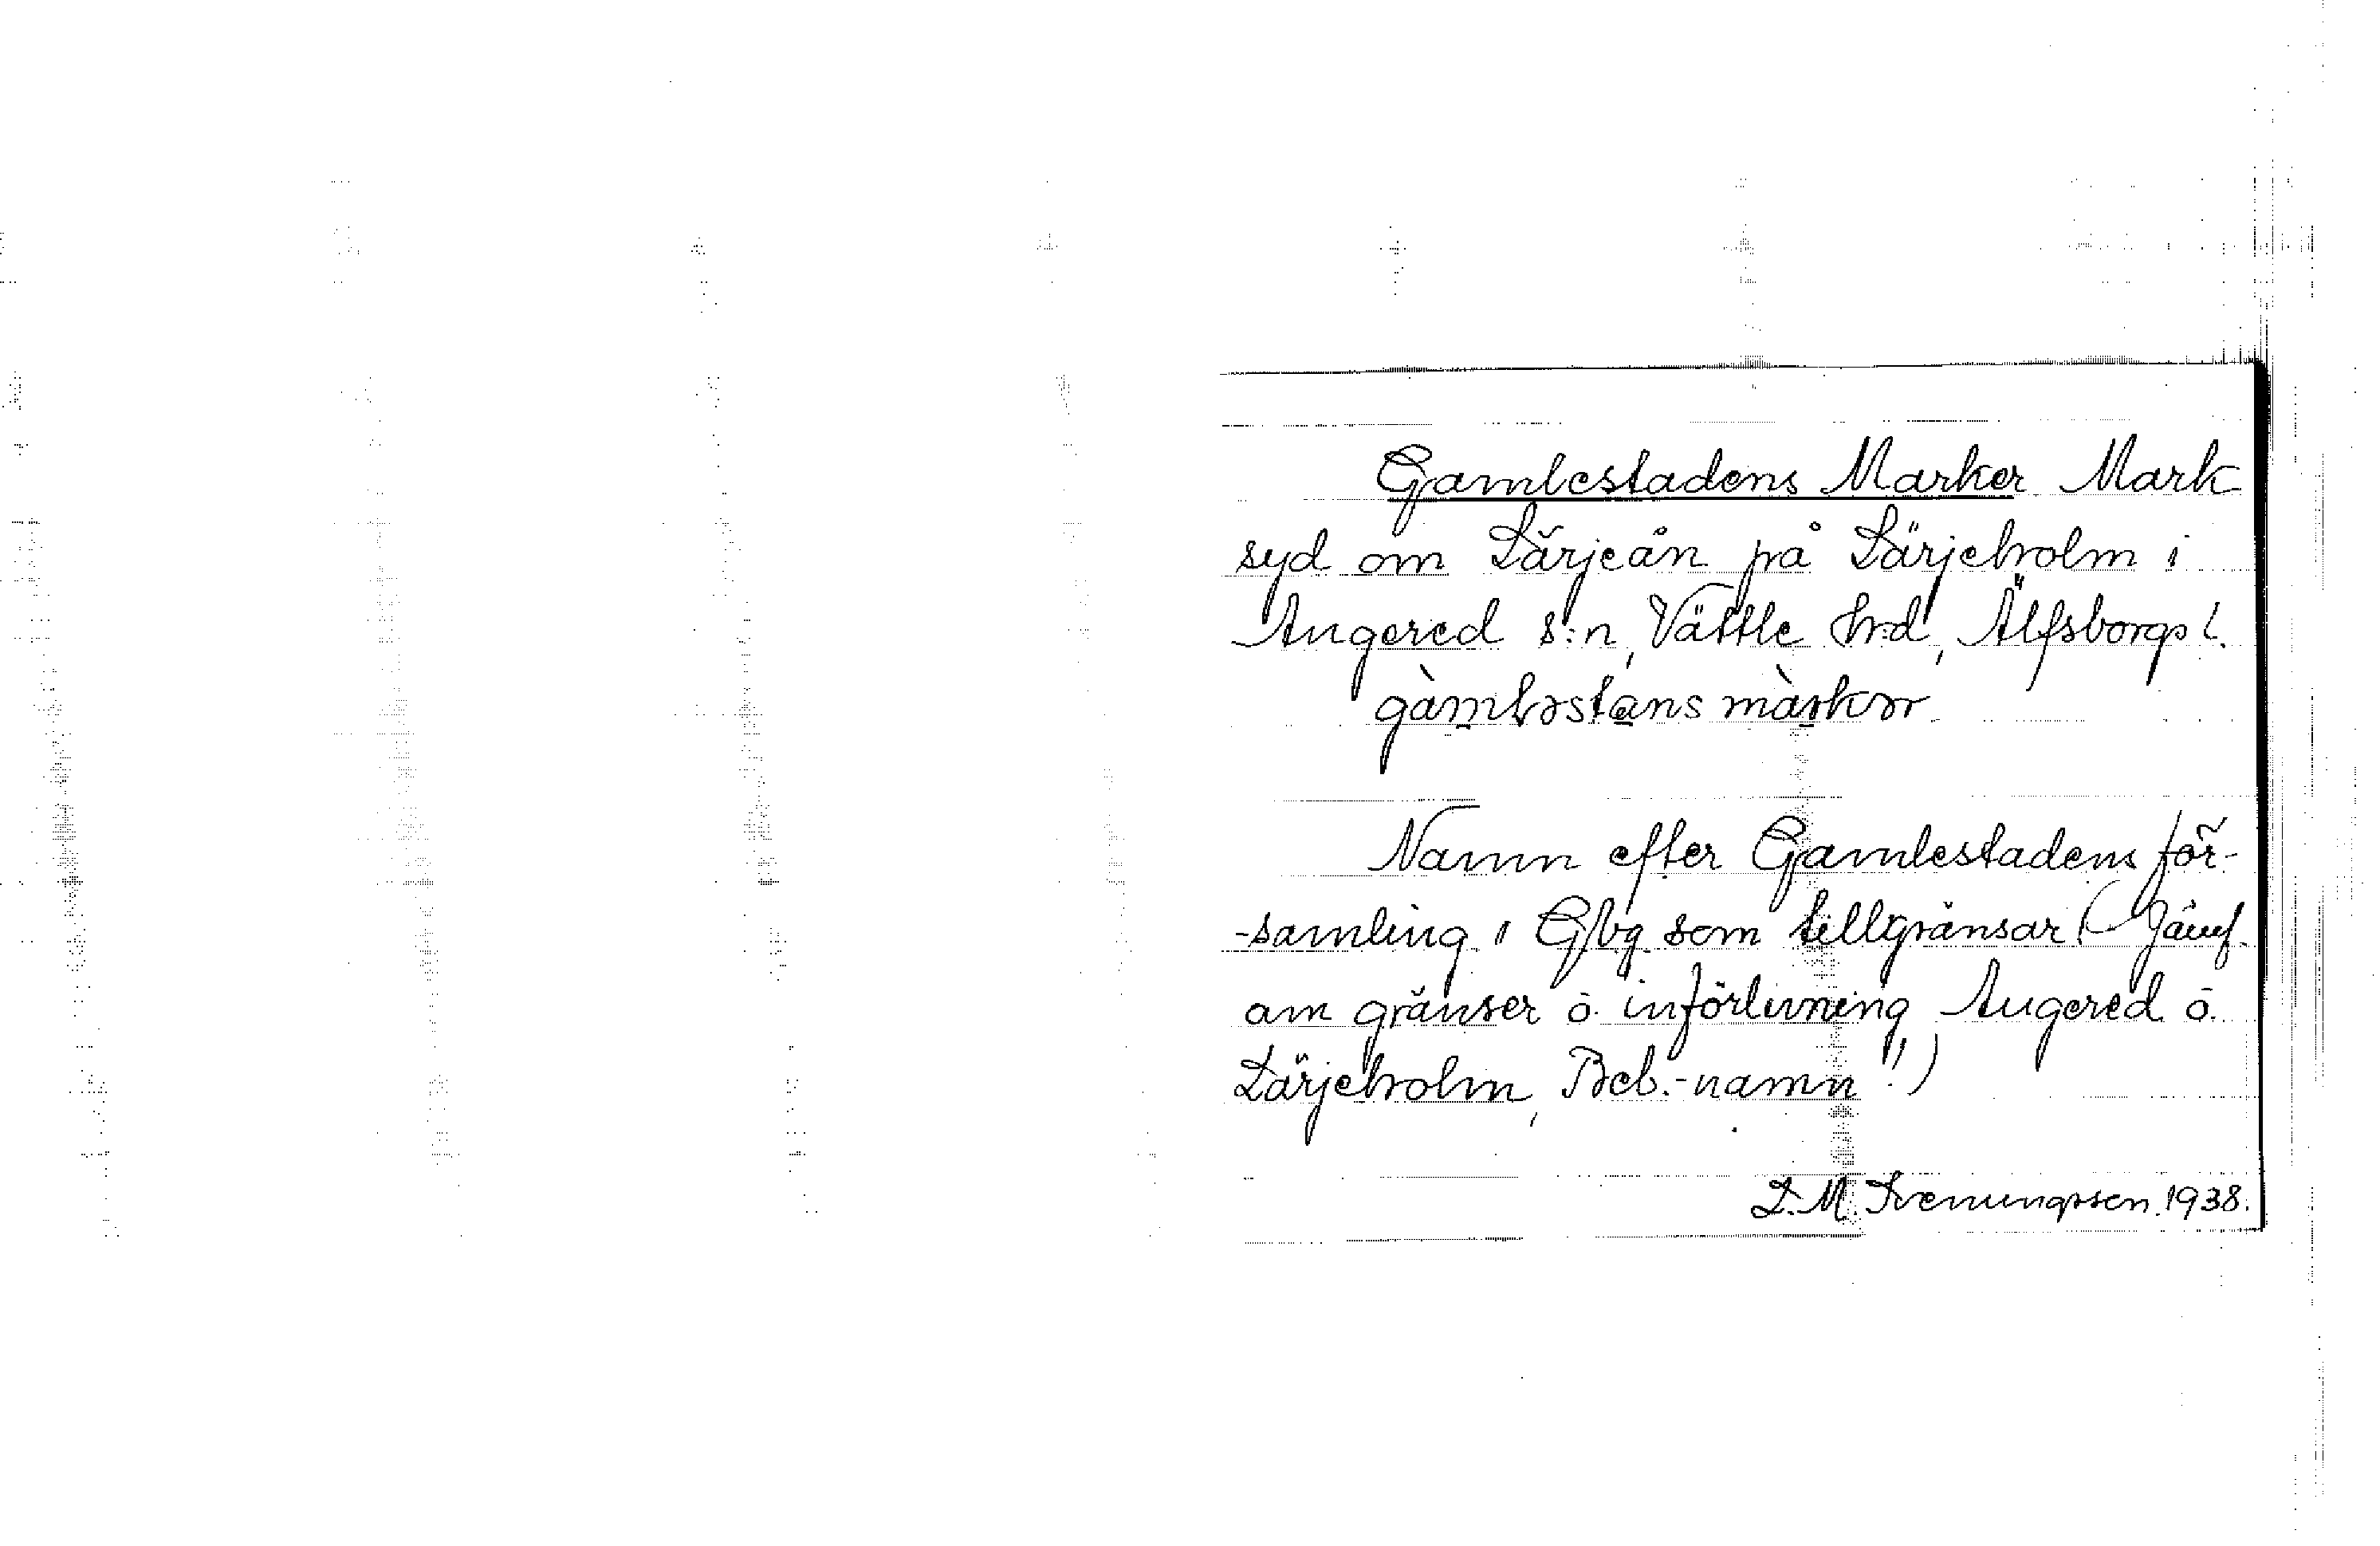 Gamlestadens Marker Mark
syd om Lärjeån på Lärjeholm i
Angered s:n, Vättle hrd, Älfsborgs l.
gàmləstans màrkər
Namn efter Gamlestadens för-
-samling i G/bg som tillgränsar (Jämf.
om gränser o. införlivning Angered o.
Lärjeholm, Beb.-namn!)
L.M. Svenungsson 1938.